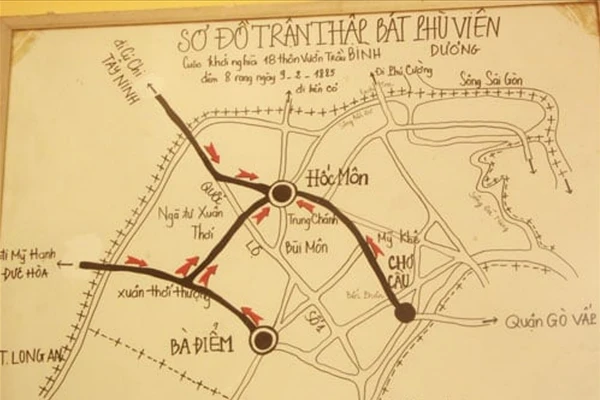 SƠ ĐỒ TRẬN THẬP BÁT PHÙ VIÊN
Cuộc khởi nghĩa 18 thôn Vườn Trầu BÌNH DƯƠNG
đêm 8 rạng ngày 9-2-1885
đi Củ Chi
TÂY NINH
đi bến cỏ
Đi Phú Cường
Sông Sài Gòn
HỐC MÔN
QUỐC
Ngã tư Xuân
Thới
Trung Chánh
Mỹ Khê
LỘ
Bùi Môn
CHỢ
CẦU
đi Mỹ Hạnh
ĐỨC HÒA
xuân thới thượng
SỐ 1
Quận GÒ VẤP
BÀ ĐIỂM
T. LONG AN